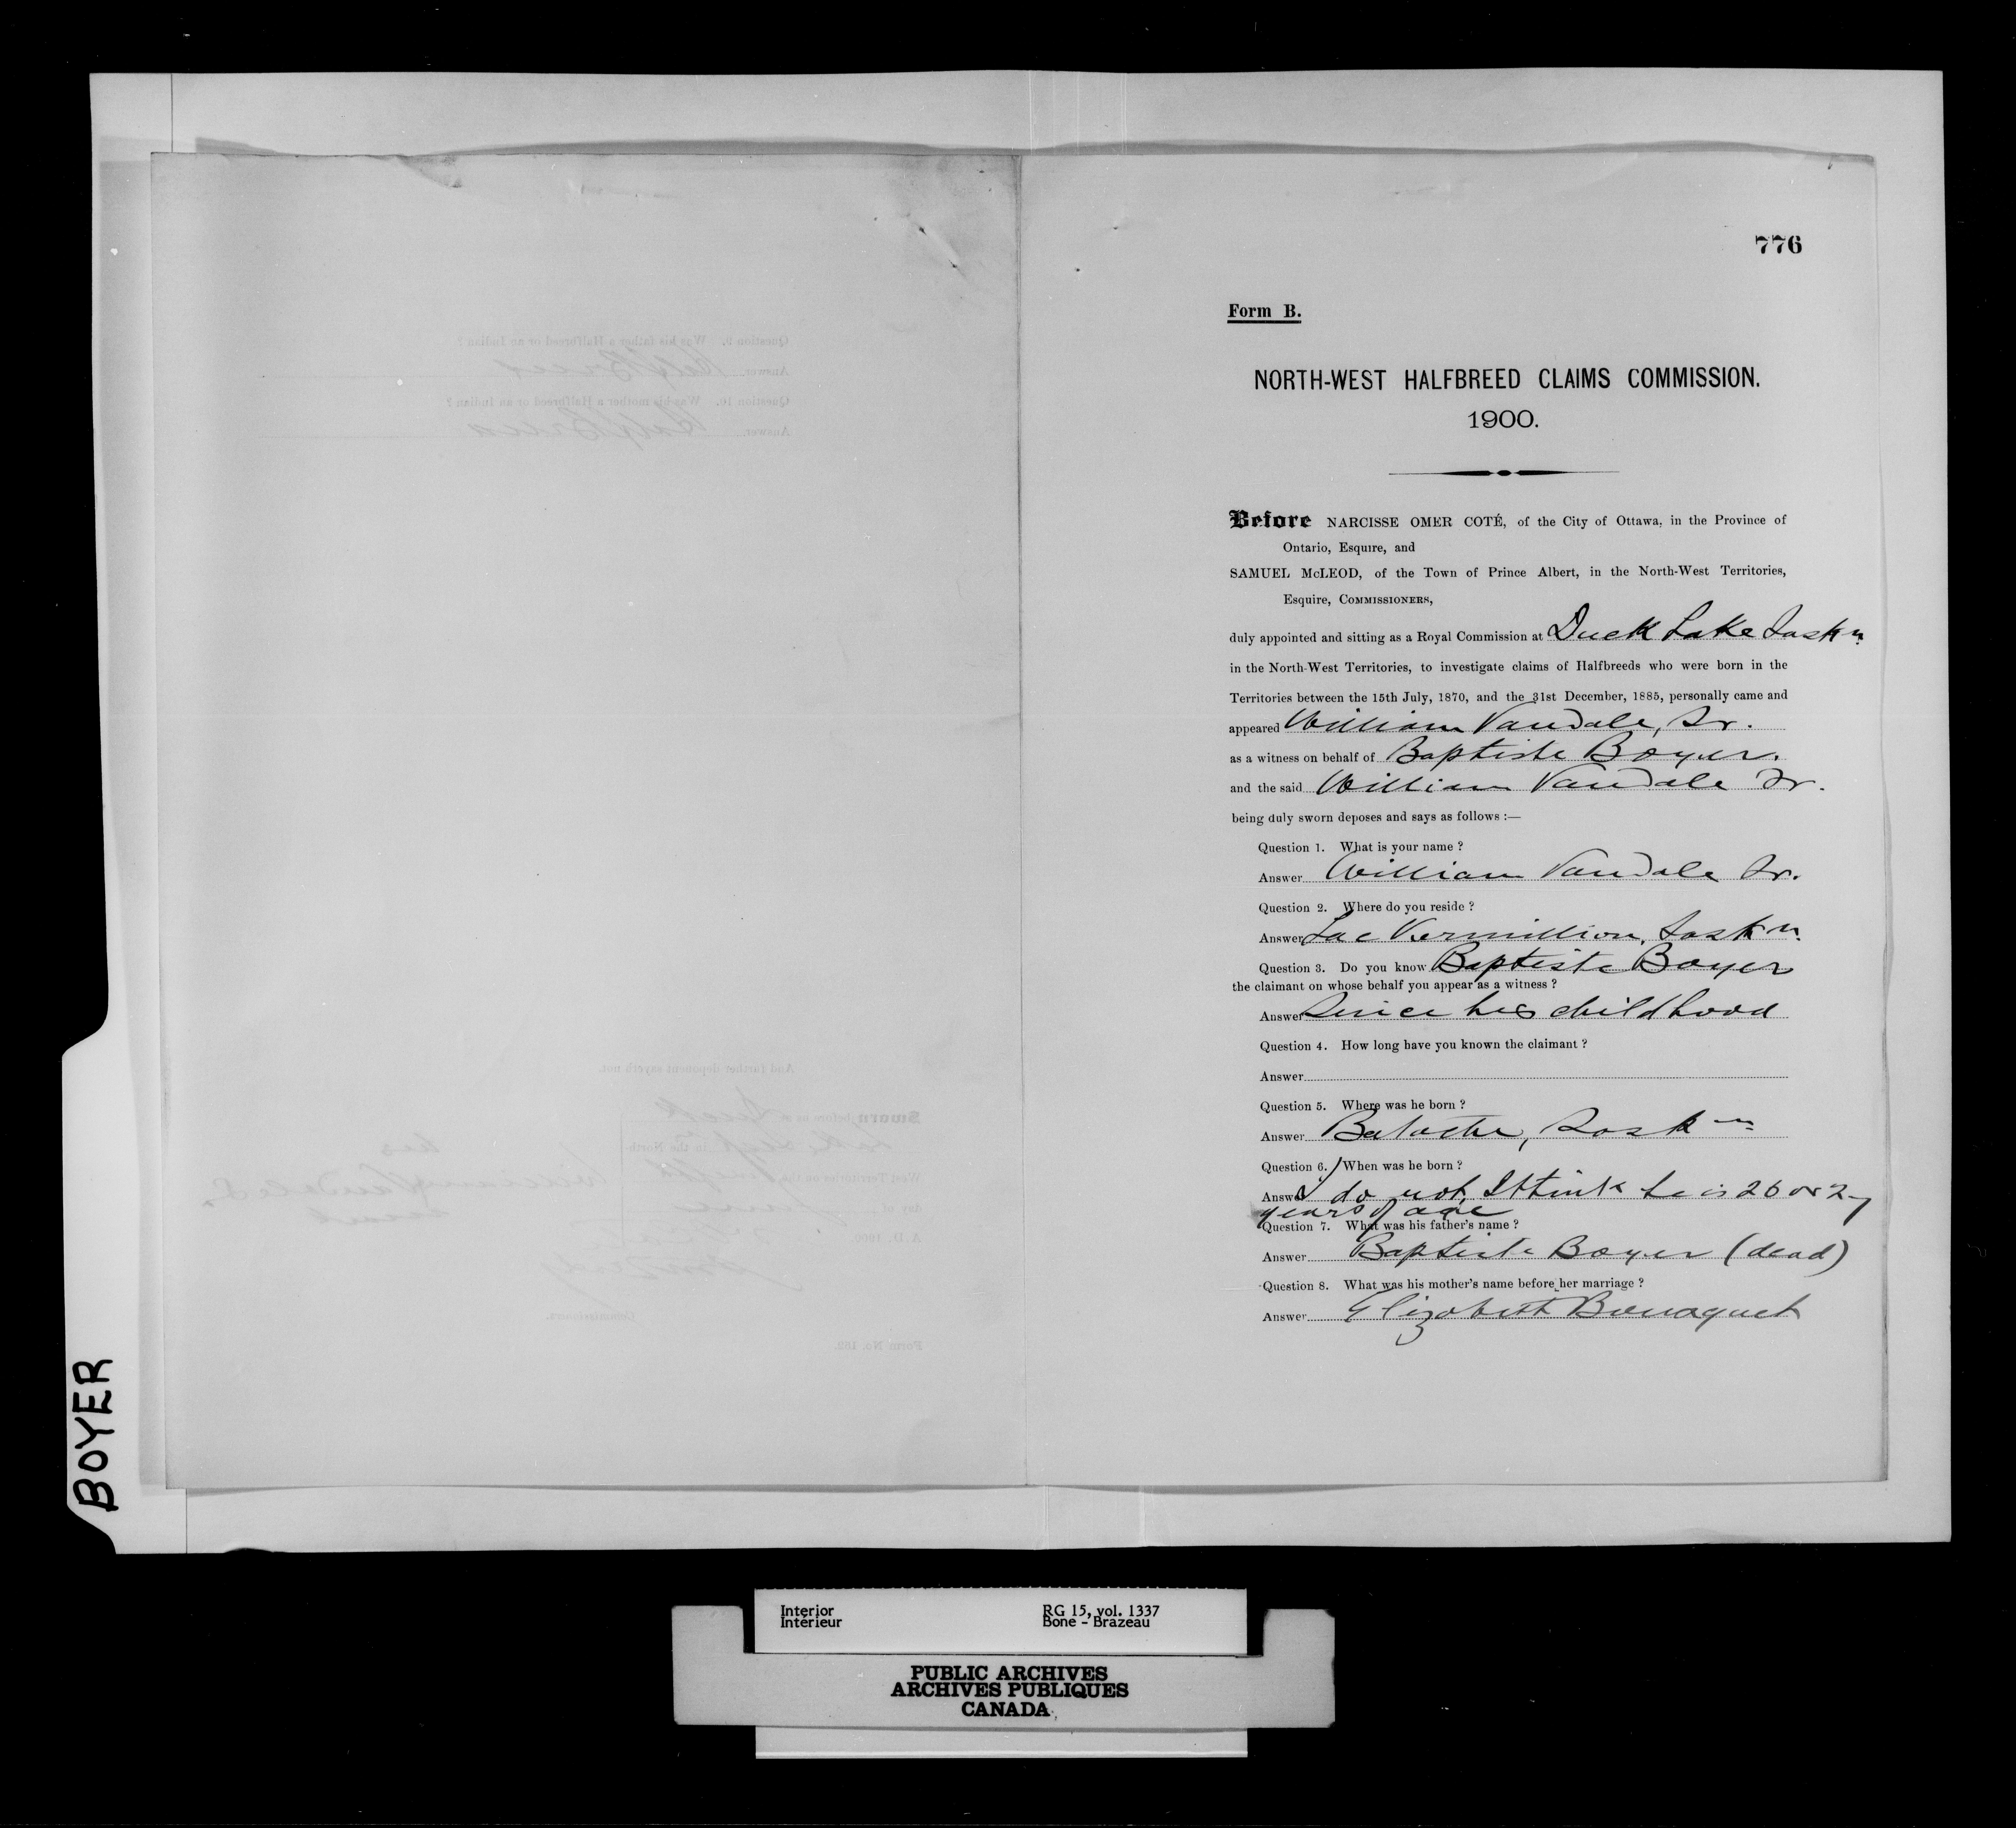 776
Form B.
NORTH-WEST HALFBREED CLAIMS COMMISSION.
1900.
Before NARCISSE OMER COTÉ, of the City of Ottawa, in the Province of
Ontario, Esquire, and
SAMUEL McLEOD, of the Town of Prince Albert, in the North-West Territories,
Esquire, COMMISSIONERS,
duly appointed and sitting as a Royal Commission at Duck Lake Saskn
in the North-West Territories, to investigate claims of Halfbreeds who were born in the
Territories between the 15th July, 1870, and the 31st December, 1885, personally came and
appeared William Vandale, Sr.
as a witness on behalf of Baptiste Boyer.
and the said William Vandale Sr.
being duly sworn deposes and says as follows :—
Question 1. What is your name ?
Answer William Vandale Sr.
Question 2. Where do you reside ?
Answer Lac Vermillion, Saskn.
Question 3. Do you know Baptiste Boyer
the claimant on whose behalf you appear as a witness ?
Answer Since his childhood
Question 4. How long have you known the claimant ?
Answer
Question 5. Where was he born ?
Answer Batoche, Saskn
Question 6. When was he born ?
Answer I do not, I think he is 26 or 27
years of age
Question 7. What was his father's name ?
Answer Baptiste Boyer (dead)
Question 8. What was his mother's name before her marriage ?
Answer Elizabeth
Question 9. Was his father a Halfbreed or an Indian ?
Answer Half Breed
Question 10. Was his mother a Halfbreed or an Indian ?
Answer Half Breed
And further deponent sayeth not.
Sworn before us at Duck
Lake in the North-
West Territories on the
day of June
A.D. 1900.
his
William Vandale Sr.
mark
Commissioners.
Form No. 152.
BOYER
Interior
Intérieur
RG 15, vol. 1337
Bone - Brazeau
PUBLIC ARCHIVES
ARCHIVES PUBLIQUES
CANADA